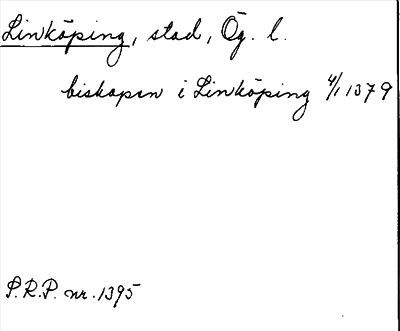 Linköping, stad, Ög. l.
biskopen i Linköping 4/1 1379
P.R.P. nr. 1395